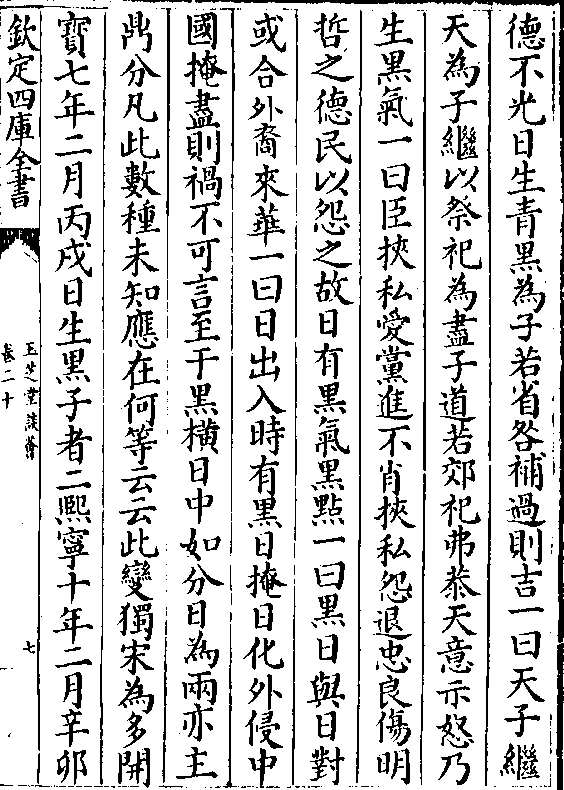 德不光日生青黑為子若省咎補過則吉一曰天子繼
天為子繼以祭祀為盡子道若郊祀弗恭天意示怒乃
生黒氣一曰臣挾私愛黨進不肖挾私怨退忠良傷明
哲之德民以怨之故日有黒氣黒點一曰黒日與日對
或合外裔來華一曰日出入時有黒日掩日化外侵中
國掩盡則禍不可言至于黒橫日中如分日為兩亦主
鼎分凡此數種未知應在何等云云此變獨宋為多開
寳七年二月丙戌日生黒子者二熙寧十年二月辛卯
欽定四庫全書
玉芝堂談薈
卷二十
七